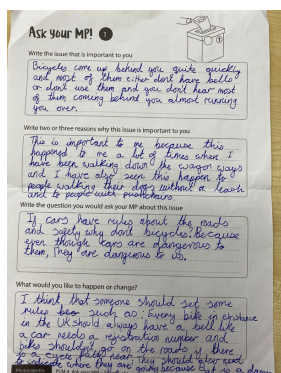 Ask your MP! 1
Write the issue that is important to you
Bicycles come up behind you quite quickly
and most of them either dont have bells
or dont use them and you don't hear most
of them coming behind you almost running
you over.
Write two or three reasons why this issue is important to you
This is important to me because this
happened to me a lot of times when I
have been walking down the wagon ways
and I have also seen this happen to
people walking their dogs without a leash
and to people with pushchairs.
Write the question you would ask your MP about this issue
If cars have rules about the roads
and safety why dont bicycles. Because
even though cars are dangerous to
them, They are dangerous to us.
What would you like to happen or change?
I think that someone should set some
rules such as: Every bike in existance
in the UK should always have a bell like
a car needs a registration number and
bikes shouldnt go on the roads if there
is a cycle path near. They should also need
to indicate where they are going because that is a